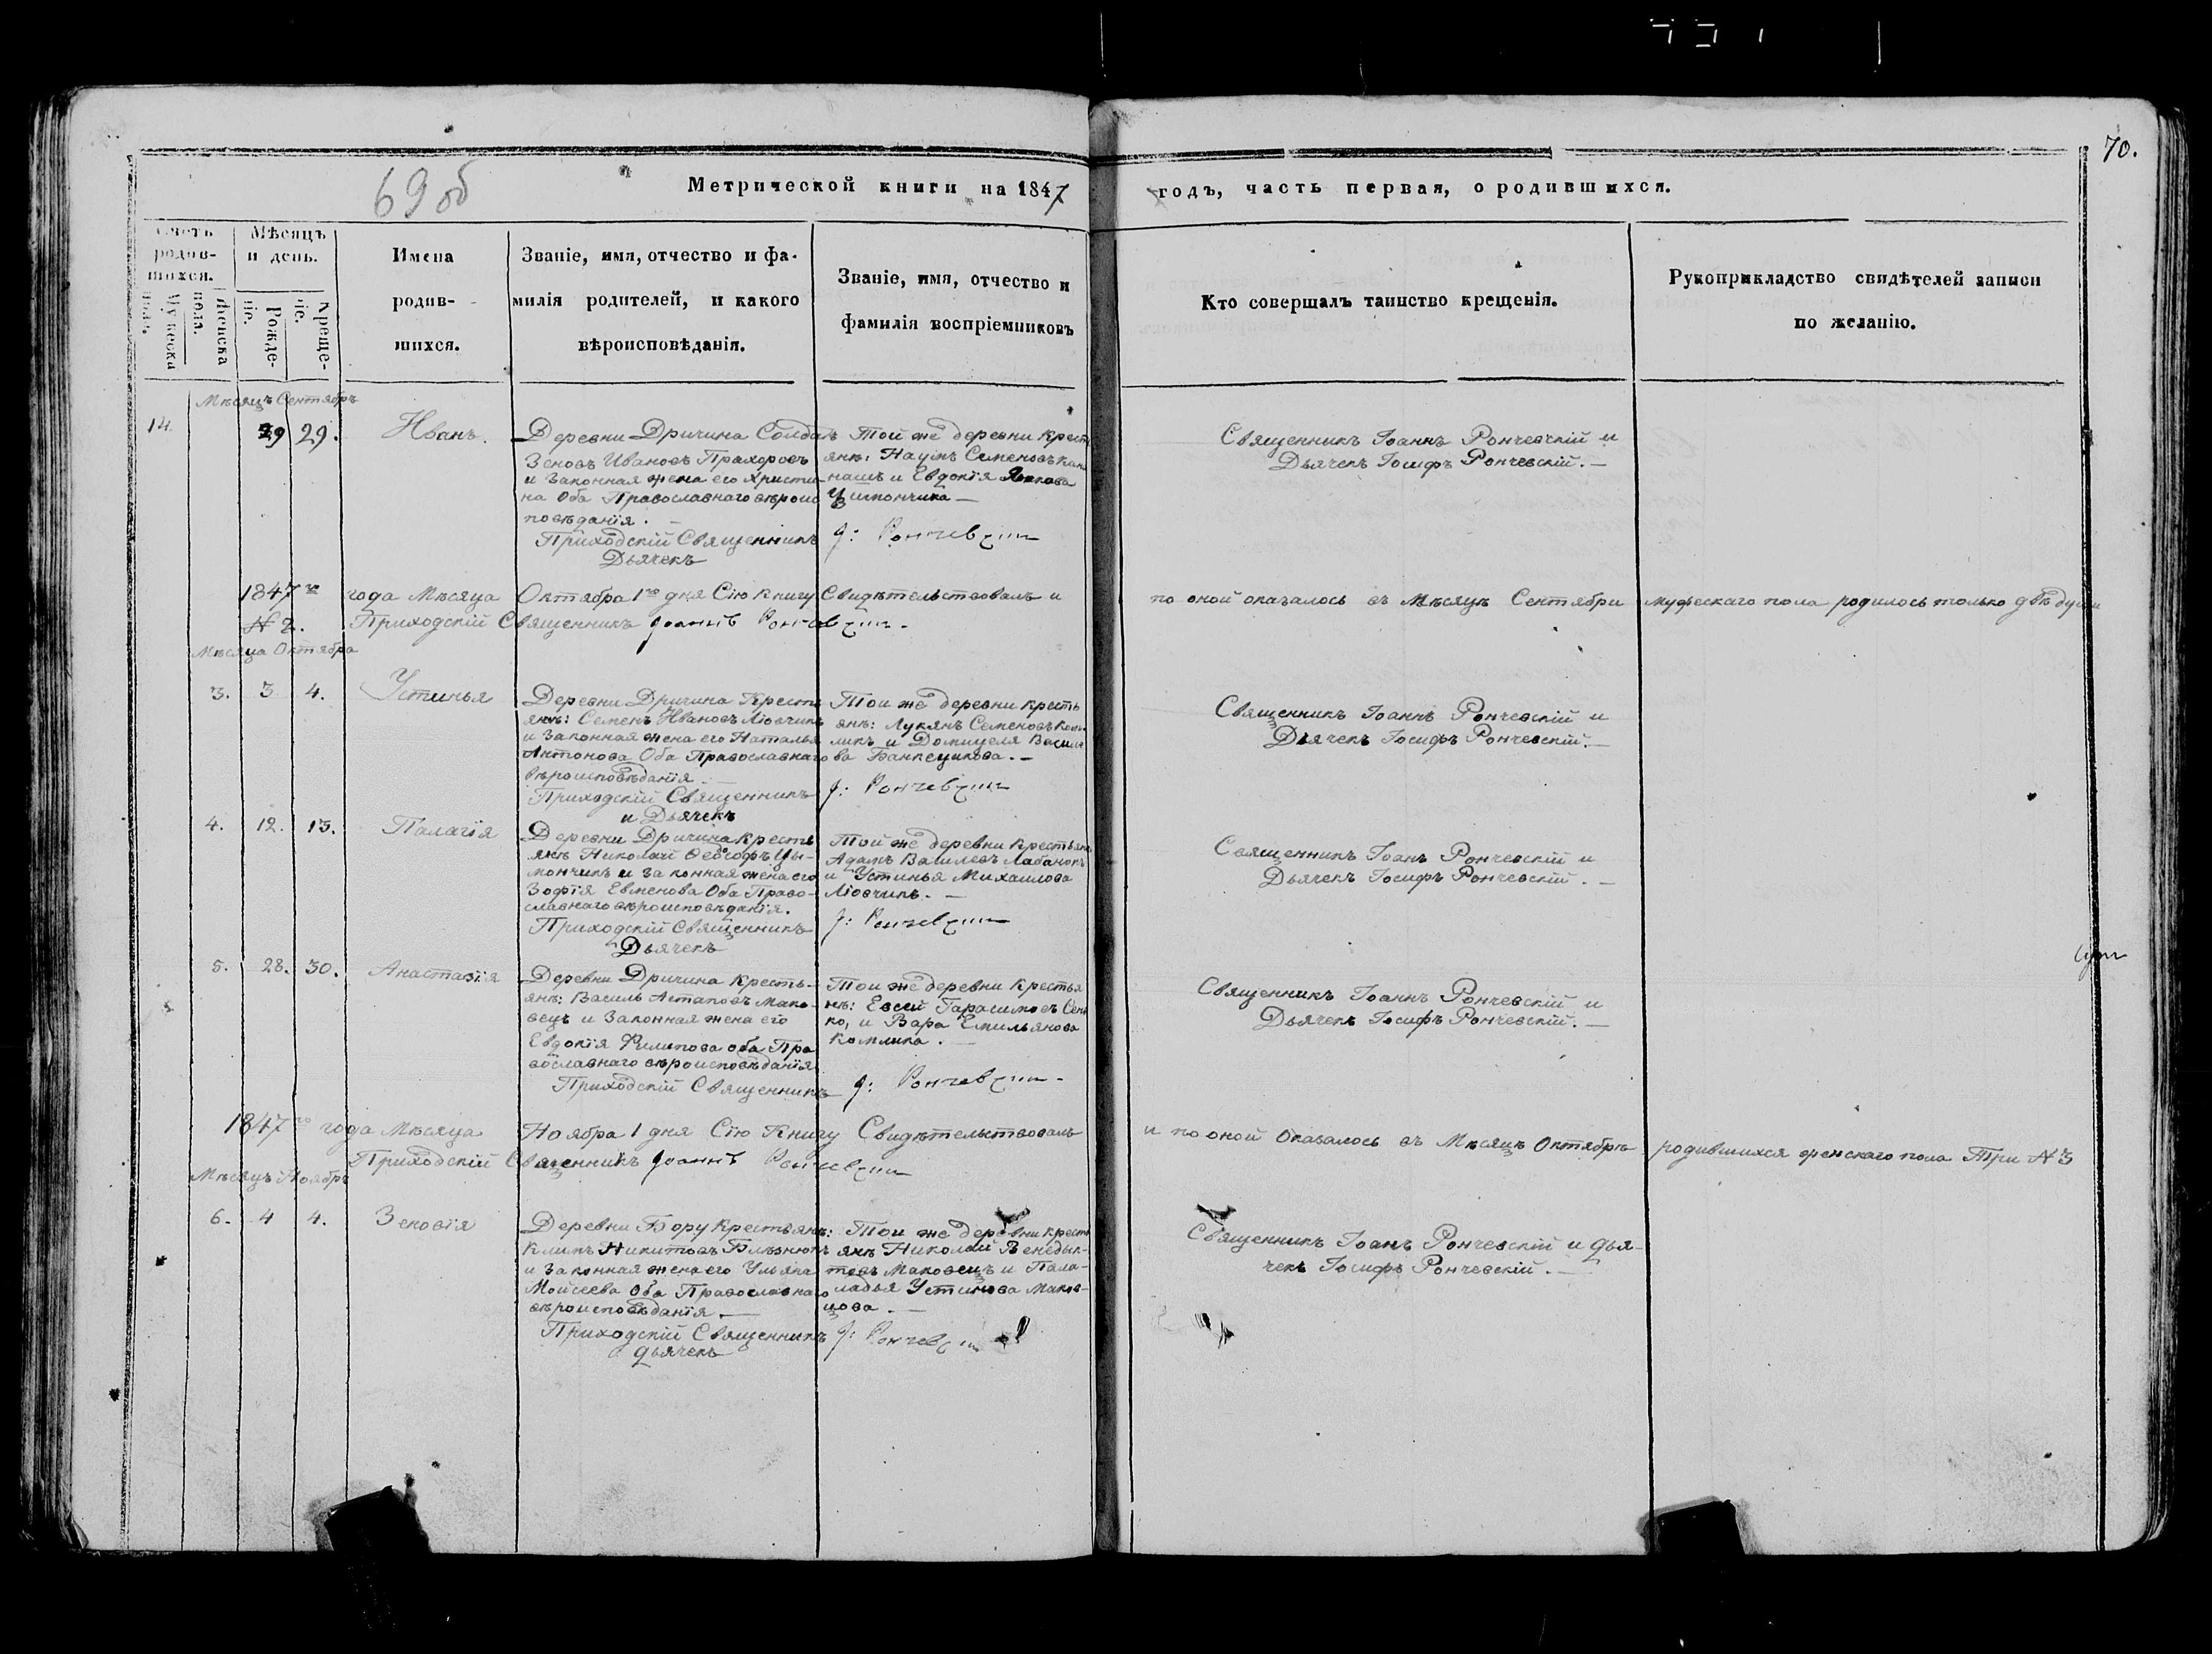 70.
69 об
Метрической книги на 1847 годъ, часть первая, о родившихся.
Счетъ родив-
шихся.
Мужеска пола.
Женска пола.
Мѣсяцъ
и день.
Рожде-
ніе.
Креще-
ніе.
Имена
родив-
шихся.
Званіе, имя, отчество и фа-
милія родителей, и какого
вѣроисповѣданія.
Званіе, имя, отчество и
фамилія воспріемниковъ
Кто совершалъ таинство крещенія.
Рукоприкладство свидѣтелей записи
по желанію.
Мѣсяцъ Сентябрь
14. 29 29. Иванъ.
Деревни Дричина Солдатъ
Зеновъ Ивановъ Прахоровъ
и Законная жена его Христи-
на Оба Православнаго вѣроис
повѣданія. —
Приходскій Священникъ
Дьячекъ
Той же деревни Крест
янъ: Наумъ Семеновъ
нашъ и Евдокія
Цимончика —
І: Рончевскій
Священникъ Іоаннъ Рончевскій и
Дьячекъ Іосифъ Рончевскій. —
1847го года Мѣсяца Октября 1го дня Сію Книгу Свидѣтельствовалъ и по оной оказалось въ Мѣсяцѣ Сентябри мужескаго пола родилось только двѣ души
№ 2. Приходскій Священникъ Іоаннъ Рончевскій.
Мѣсяца Октября
3. 3 4. Устинья
Деревни Дричина Кресть
янъ: Семенъ Ивановъ Ліовчикъ
и Законная жена его Наталья
Антонова Оба Православнаго
вѣроисповѣданія —
Приходскій Священникъ
и Дьячекъ
Той же деревни кресть
янъ: Лукянъ Семеновъ Ком-
ликъ и Домицеля Васил
ва Банкецикова. —
І: Рончевскій
Священникъ Іоаннъ Рончевскій и
Дьячекъ Іосифъ Рончевскій. —
4. 12. 13. Палагія
Деревни Дричина Кресть
янъ Николай Цы-
мончикъ и законная жена его
Зофія Евменова Оба Право-
славнаго вѣроисповѣданія.
Приходскій Священникъ
Дьячекъ
Той же деревни Крестьянъ
Адамъ Василевъ Лабанокъ
и Устинья Михаилова
Ліовчикъ. —
І: Рончевскій
Священникъ Іоанъ Рончевскій и
Дьячекъ Іосифъ Рончевскій. —
5. 28. 30. Анастазія
Деревни Дричина Кресть-
янъ: Василь Астаповъ Мако-
вецъ и Законная жена его
Евдокія Филипова оба Пра
вославнаго вѣроисповѣданія
Приходскій Священникъ
Той же деревни Крестья
нъ: Евсей Гарасимовъ Сен
ко, и Вара Емильянова
Комлика. —
І: Рончевскій
Священникъ Іоаннъ Рончевскій и
Дьячекъ Іосифъ Рончевскій. —
1847го года Мѣсяца Ноября 1 дня Сію Книгу Свидѣтельствовалъ и по оной Оказалось въ Мѣсяцѣ Октябрѣ родившихся женскаго пола Три № 3
Приходскій Священникъ Іоаннъ Рончевскій
Мѣсяцъ Ноябрь
6. 4 4. Зеновія
Деревни Бору Крестьянъ:
Климъ Никитовъ Блѣзнюкъ
и Законная жена его Ульяна
Моисеева Оба Православнаго
вѣроисповѣданія —
Приходскій Священникъ
дьячекъ
Той же деревни крест
янъ Николай Венедык-
товъ Маковецъ и Пала-
ладья Устинова Маков-
цова. —
І: Рончевскій
Священникъ Іоанъ Рончевскій и Дья-
чекъ Іосифъ Рончевскій. —